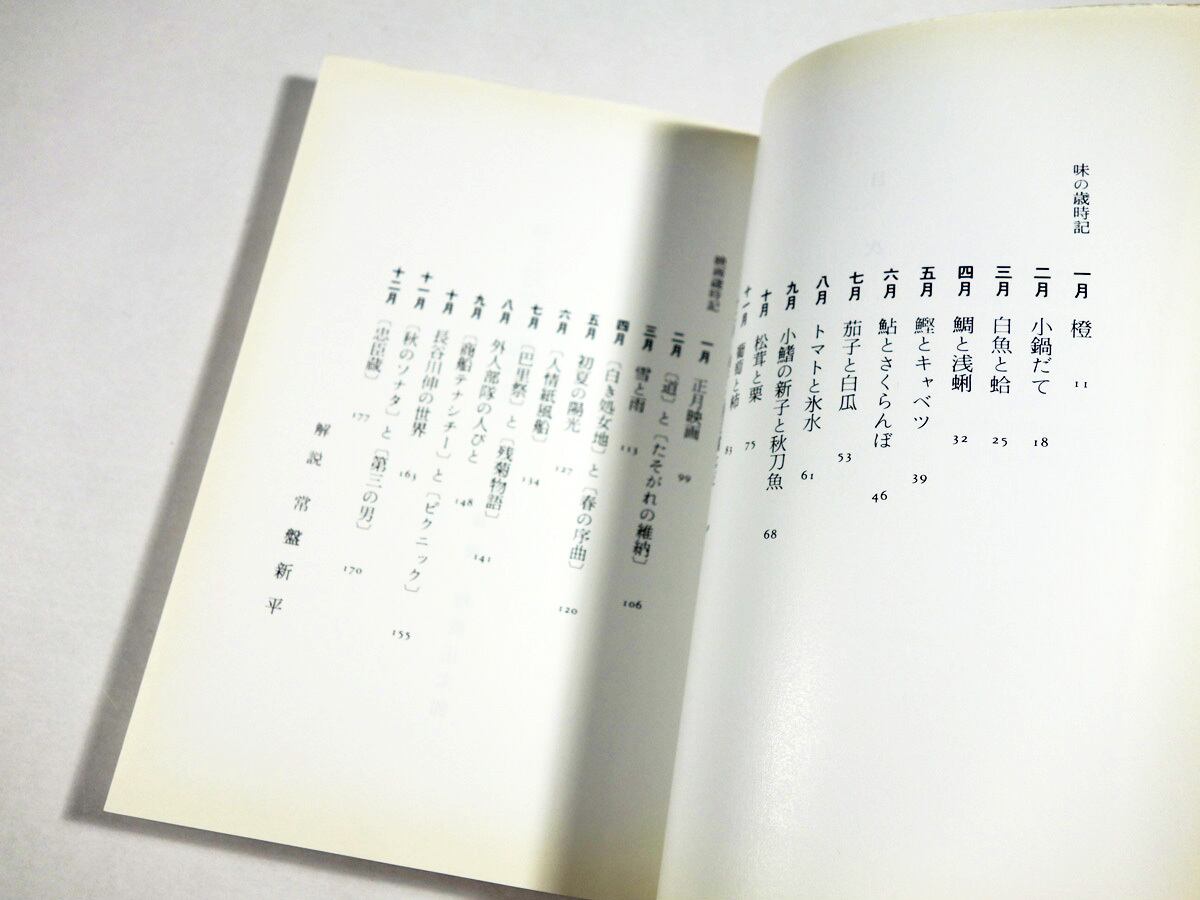 味の歳時記
一月 橙 11
二月 小鍋だて 18
三月 白魚と蛤 25
四月 鯛と浅蜊 32
五月 鰹とキャベツ 39
六月 鮎とさくらんぼ 46
七月 茄子と白瓜 53
八月 トマトと氷水 61
九月 小鰭の新子と秋刀魚 68
十月 松茸と栗 75
十一月 葡萄と柿 83
映画歳時記
一月 正月映画 99
二月 〔道〕と〔たそがれの維納〕 106
三月 雪と雨 113
四月 〔白き処女地〕と〔春の序曲〕 120
五月 初夏の陽光 127
六月 〔人情紙風船〕 134
七月 〔巴里祭〕と〔残菊物語〕 141
八月 外人部隊の人びと 148
九月 〔商船テナシチー〕と〔ピクニック〕 155
十月 長谷川伸の世界 163
十一月 〔秋のソナタ〕と〔第三の男〕 170
十二月 〔忠臣蔵〕 177
解説 常盤新平